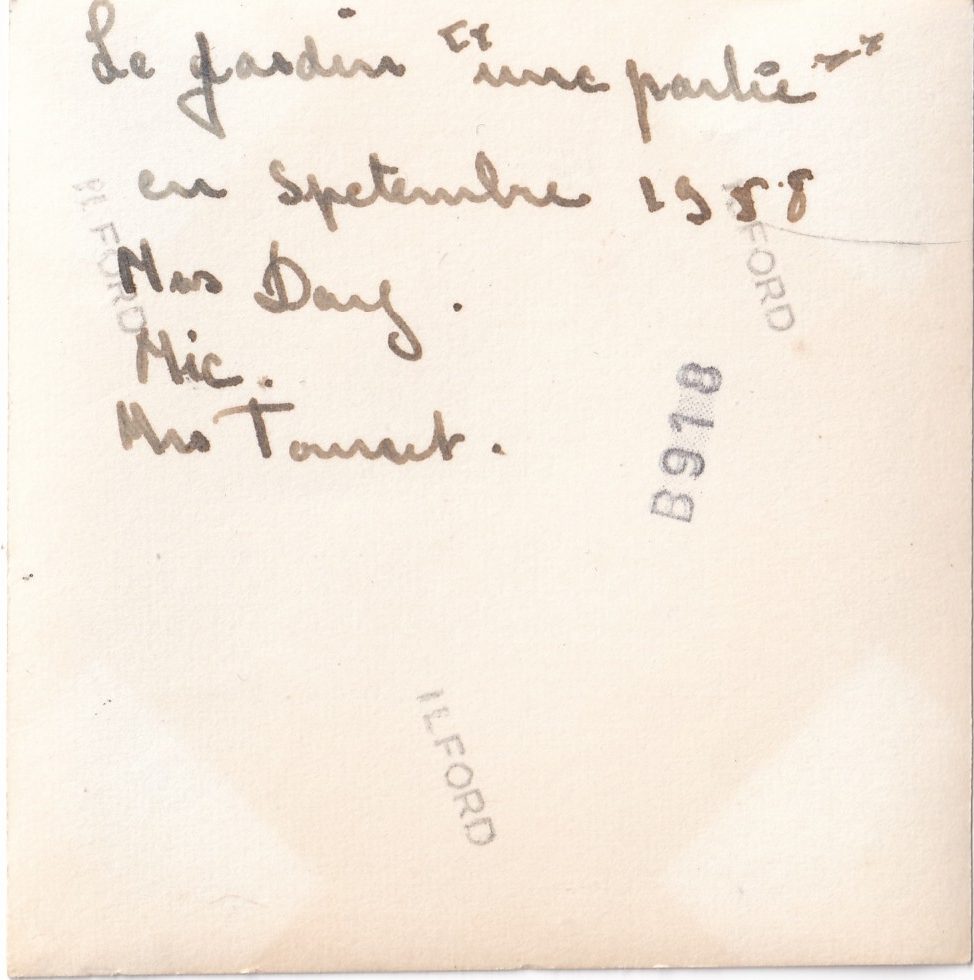 Le jardin "une partie"
en Spetembre 1958
Mrs Dary.
Mic.
Mrs Tournet.
ILFORD
ILFORD
B918
ILFORD